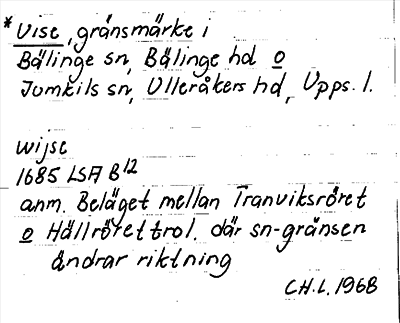 *Vise, gränsmärke i
Bälinge sn, Bälinge hd o
Jumkils sn, Ulleråkers hd, Upps. l.
wijse
1685 LSA B12
anm. Beläget mellan Tranviksröret
o Hällröret trol. där sn-gränsen
ändrar riktning
CH.L. 1968